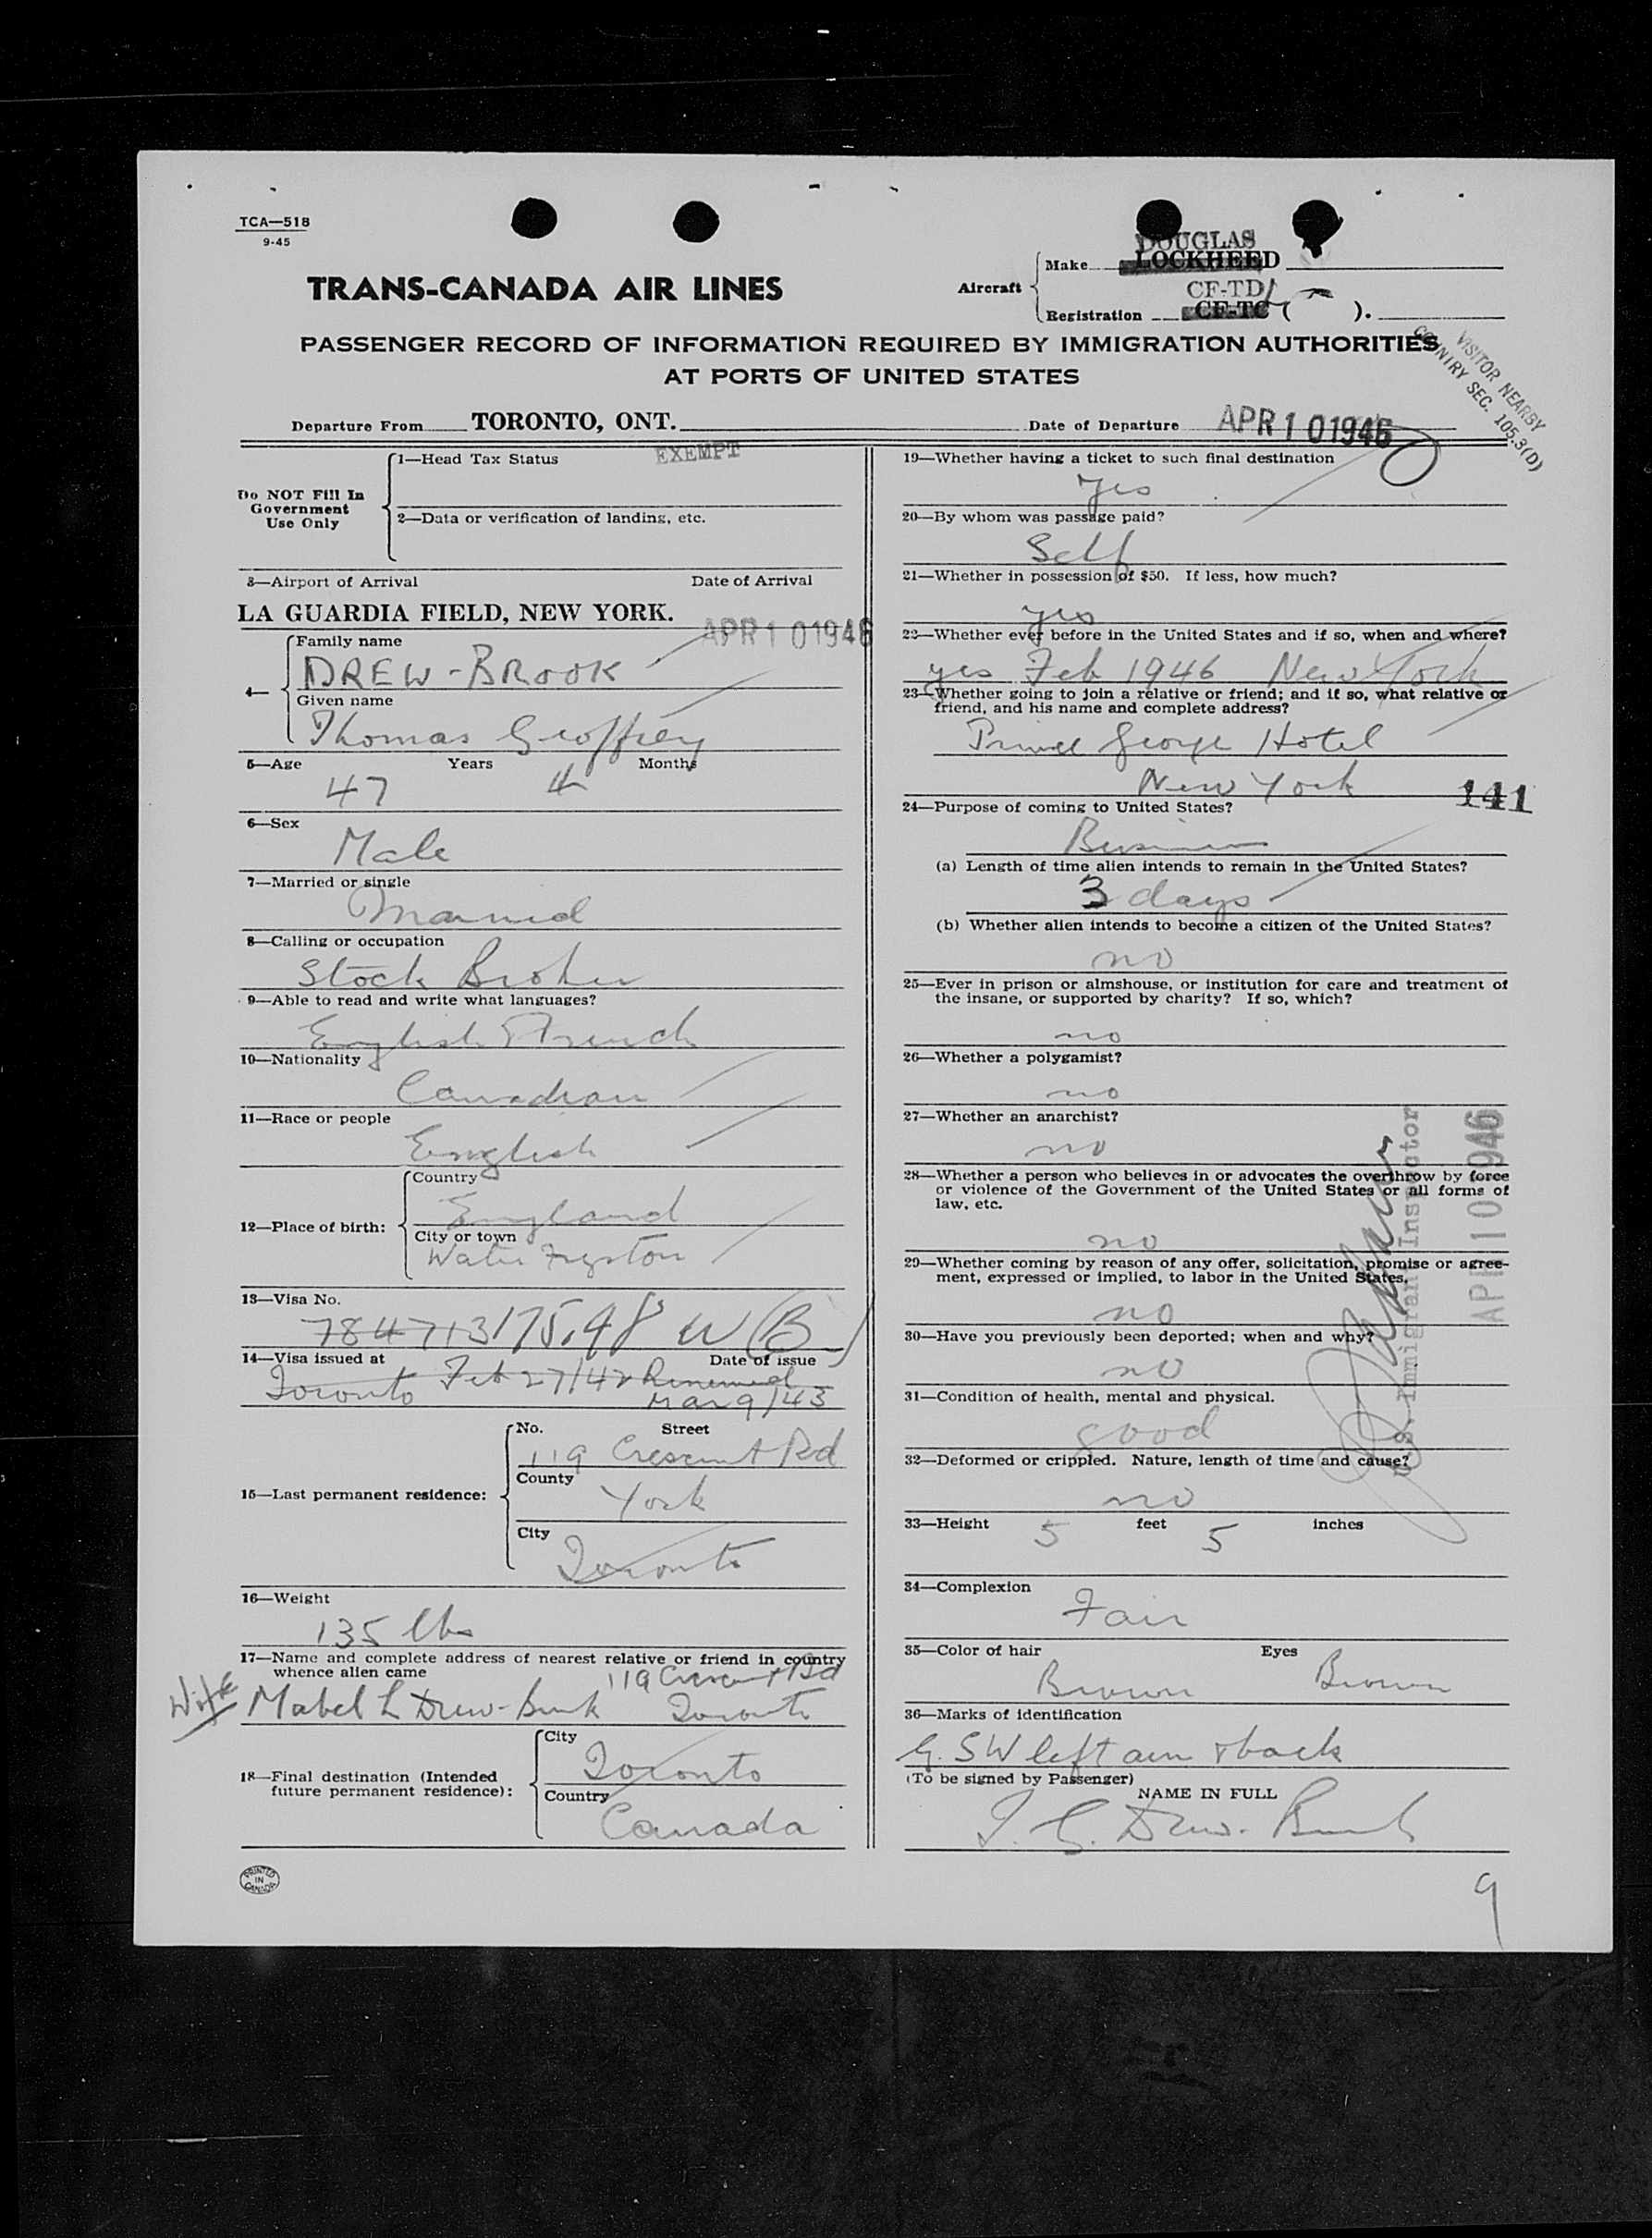 TCA—518
9-45
DOUGLAS
Make LOCKHEED
TRANS-CANADA AIR LINES
Aircraft
CF-TD
Registration CF-TC ( ).
PASSENGER RECORD OF INFORMATION REQUIRED BY IMMIGRATION AUTHORITIES
AT PORTS OF UNITED STATES
VISITOR NEARBY
COUNTRY SEC. 105.3(D)
Departure From TORONTO, ONT. Date of Departure APR 10 1946
1—Head Tax Status EXEMPT
Do NOT Fill In
Government
Use Only
2—Data or verification of landing, etc.
3—Airport of Arrival Date of Arrival
LA GUARDIA FIELD, NEW YORK. APR 10 1946
4— Family name
DREW-BROOK
Given name
Thomas Geoffrey
5—Age Years Months
47 4
6—Sex
Male
7—Married or single
Married
8—Calling or occupation
Stock Broker
9—Able to read and write what languages?
English & French
10—Nationality
Canadian
11—Race or people
English
12—Place of birth: Country
England
City or town
Water Fryston
13—Visa No.
W (B)
14—Visa issued at Date of issue
Toronto Feb 27/42 Renewed
Mar 9/43
15—Last permanent residence: No. Street
119 Crescent Rd
County
York
City
Toronto
16—Weight
135 lbs
17—Name and complete address of nearest relative or friend in country
whence alien came 119 Crescent Rd
Wife Mabel L Drew-Brook Toronto
18—Final destination (Intended
future permanent residence): City
Toronto
Country
Canada
PRINTED
IN
CANADA
19—Whether having a ticket to such final destination
Yes
20—By whom was passage paid?
Self
21—Whether in possession of $50. If less, how much?
yes
22—Whether ever before in the United States and if so, when and where?
yes Feb 1946 New York
23—Whether going to join a relative or friend; and if so, what relative or
friend, and his name and complete address?
Prince George Hotel
New York
141
24—Purpose of coming to United States?
Business
(a) Length of time alien intends to remain in the United States?
3 days
(b) Whether alien intends to become a citizen of the United States?
no
25—Ever in prison or almshouse, or institution for care and treatment of
the insane, or supported by charity? If so, which?
no
26—Whether a polygamist?
no
27—Whether an anarchist?
no
28—Whether a person who believes in or advocates the overthrow by force
or violence of the Government of the United States or all forms of
law, etc.
no
29—Whether coming by reason of any offer, solicitation, promise or agree-
ment, expressed or implied, to labor in the United States.
no
30—Have you previously been deported; when and why?
no
31—Condition of health, mental and physical.
good
32—Deformed or crippled. Nature, length of time and cause?
no
U.S. Immigrant Inspector
APR 10 1946
33—Height 5 feet 5 inches
34—Complexion
Fair
35—Color of hair Eyes
Brown Brown
36—Marks of identification
G.S.W left arm & back
(To be signed by Passenger)
NAME IN FULL
T. G. Drew-Brook
9